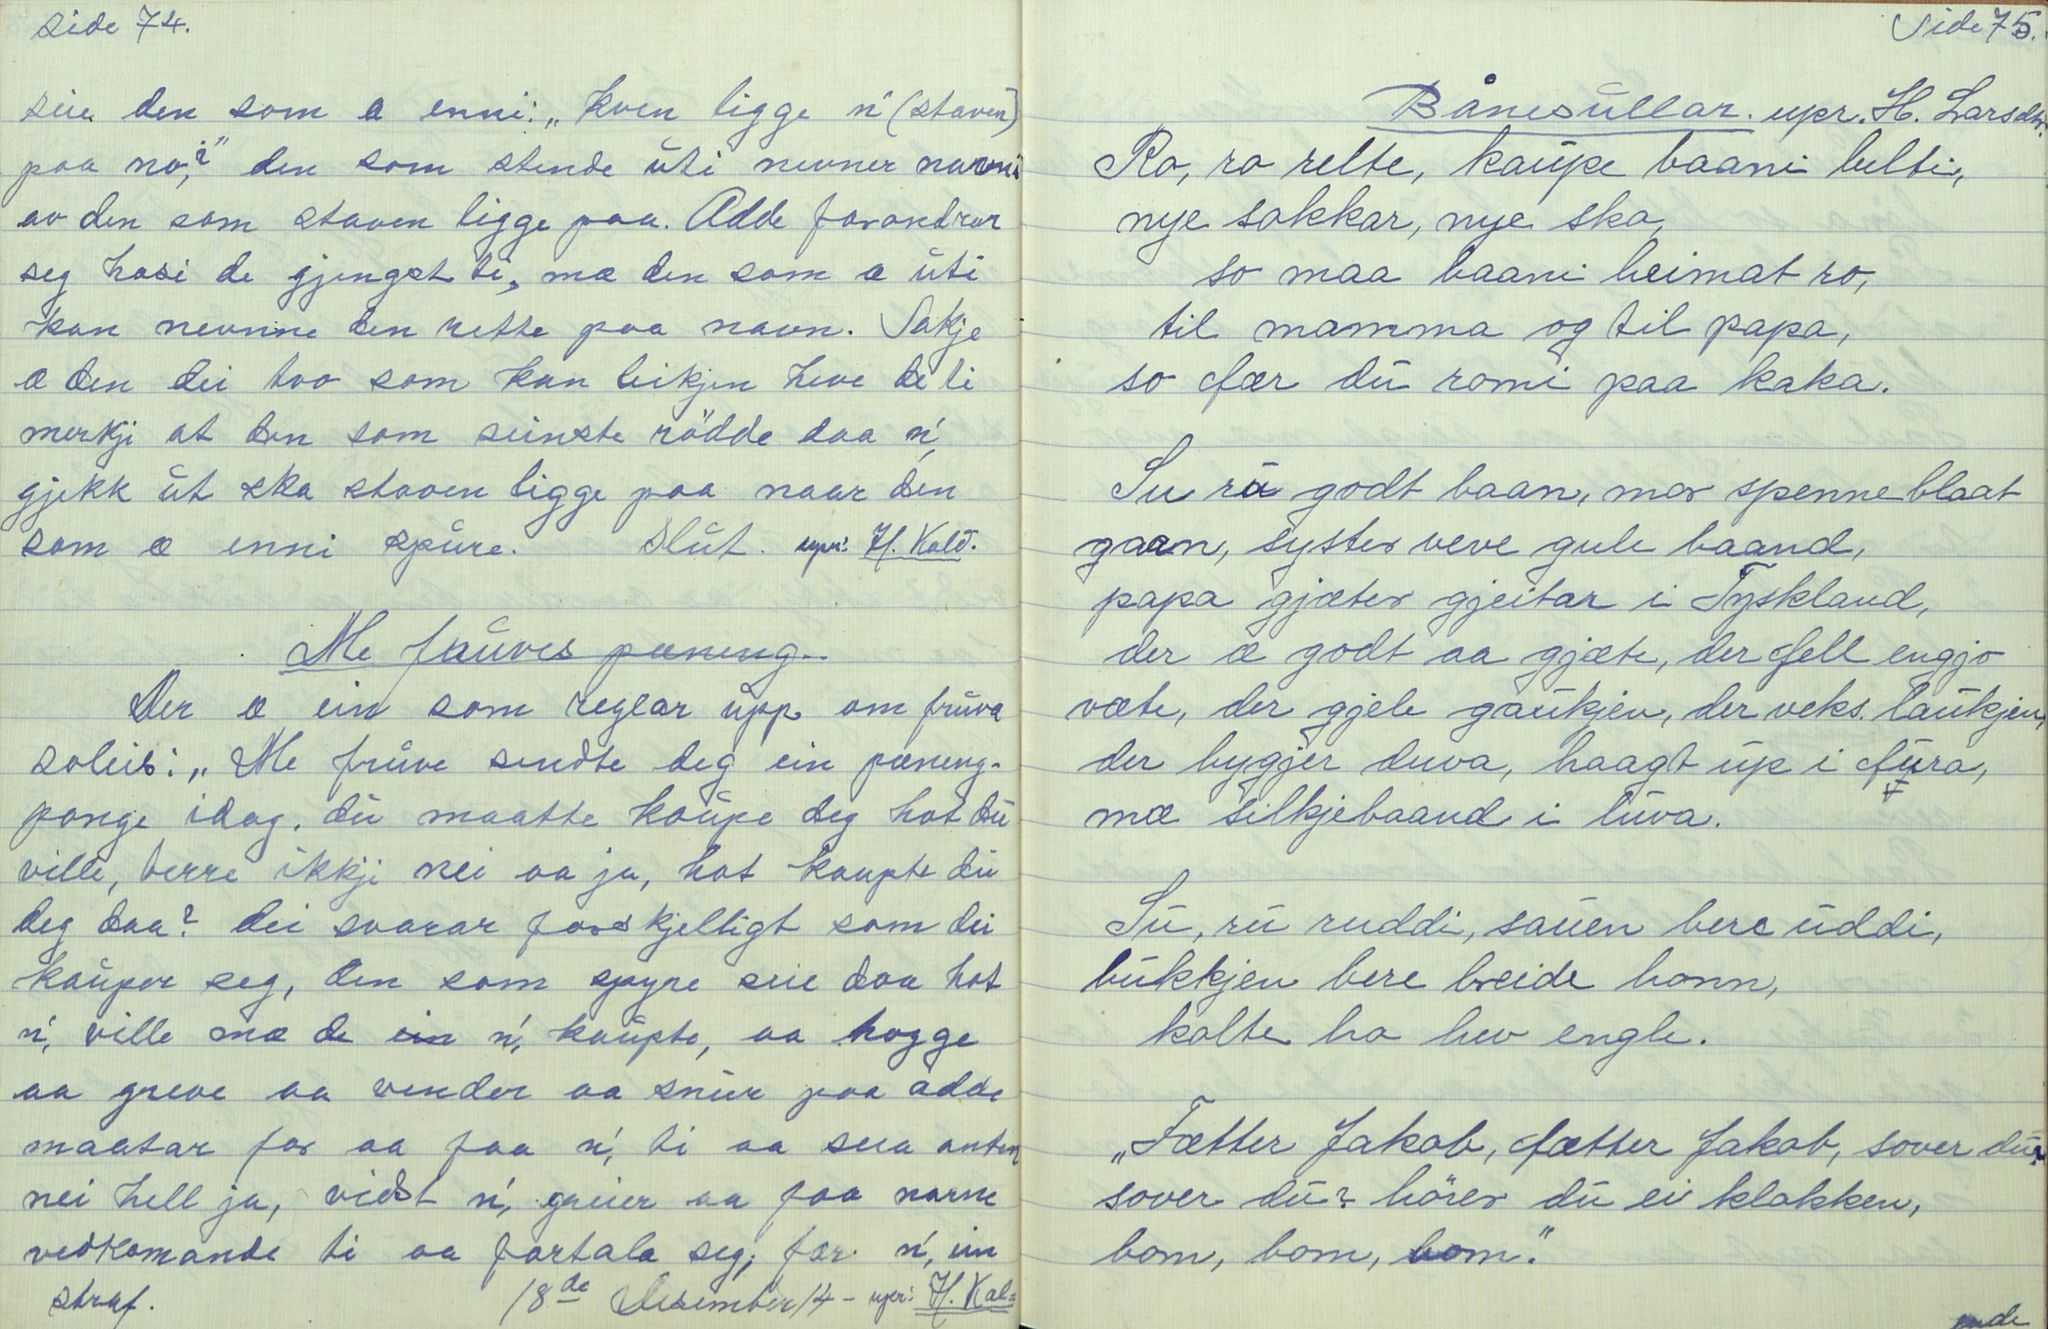 side 74.
seie den som æ enni: „kven ligge n' (staven)
paa no?" den som stende úti nevner navni
av den som staven ligge paa. Adde forandrar
seg hosi de gjengst ti, mæ den som æ úti
kan nevnne den rette paa navn. Sakje
æ den dei tvo som kan leikjen heve de ti
merkji at den som seinste rödde daa n',
gjekk út ska staven ligge paa naar den
som æ enni spúre. Slút. upr: H. Kald.
Me frúves pæneng.
Der æ ein som reglar úpp om frúva
soleis: „Me frúve sendte deg ein pæneng-
ponge idag, dú maatte kaúpe deg hot dú
ville, berre ikkji nei aa ja, hot kaupte dú
deg daa? dei svarar forskjelligt som dei
kaúper seg, den som spyre seie daa hot
n', ville mæ de ein n', kaúpte, aa hogge
aa greve aa vender aa snúr paa adde
maatar for aa faa n', ti aa seia anten
nei hell ja, vidst n', greier aa faa narne
vedkomande ti aa fortala seg, fær n', ein
straf. 18de Desember 14 - upr: H. Kal=
Side 75.
Bånesúllar. upr. H. Larsdtr.
Ro, ro relte, kaúpe baani belti,
nye sokkar, nye sko,
so maa baani heimat ro,
til mamma og til papa,
so fær dú romi paa kaka.
Su ru godt baan, mor spenne blaat
gaan, syster veve gule baand,
papa gjæter gjeitar i Tyskland,
der æ godt aa gjæte, der fell engjo
væte, der gjele gaúkjen, der veks laúkjen,
der bygjer duva, haagt úp i fúra,
mæ silkjebaand i lúva.
Sú, rú ruddi, saúen bere úddi,
búkkjen bere breide honn,
kolte ho hev engle.
„Fætter Jakob, fætter Jakob, sover dú?
sover dú? hörer dú ei klokken,
bom, bom, bom."